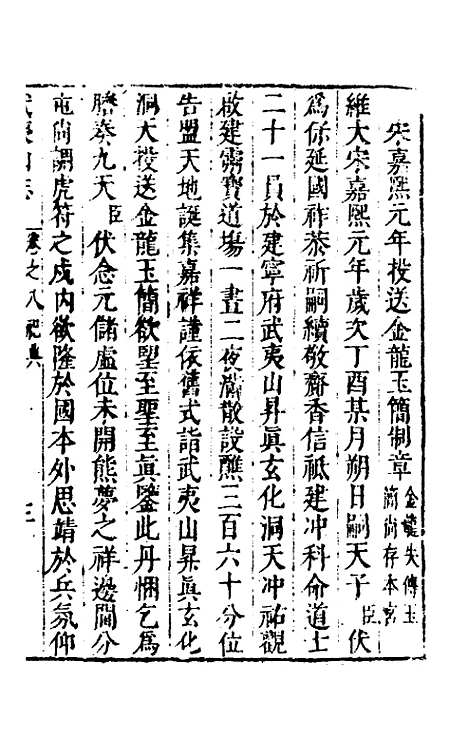 宋嘉熙元年投送金龍玉簡制章金龍失傳玉簡尚存本宮
維大宋嘉熙元年歲次丁酉某月朔日嗣天子臣伏
為保延國祚恭祈嗣續敬齋香信祗建冲科命道士
二十一員於建寧府武夷山昇眞玄化洞天冲祐觀
啟建靈寳道塲一晝二夜滿散設醮三百六十分位
告盟天地誕集嘉祥謹依舊式詣武夷山昇眞玄化
洞天投送金龍玉簡欲望至聖至眞鑒此丹悃乞為
謄奏九天臣伏念元儲虛位未開熊夢之祥邊閫分
屯尚調虎符之戍内欲隆於國本外思靖於兵氛仰
武夷山志
卷之八祀典
三